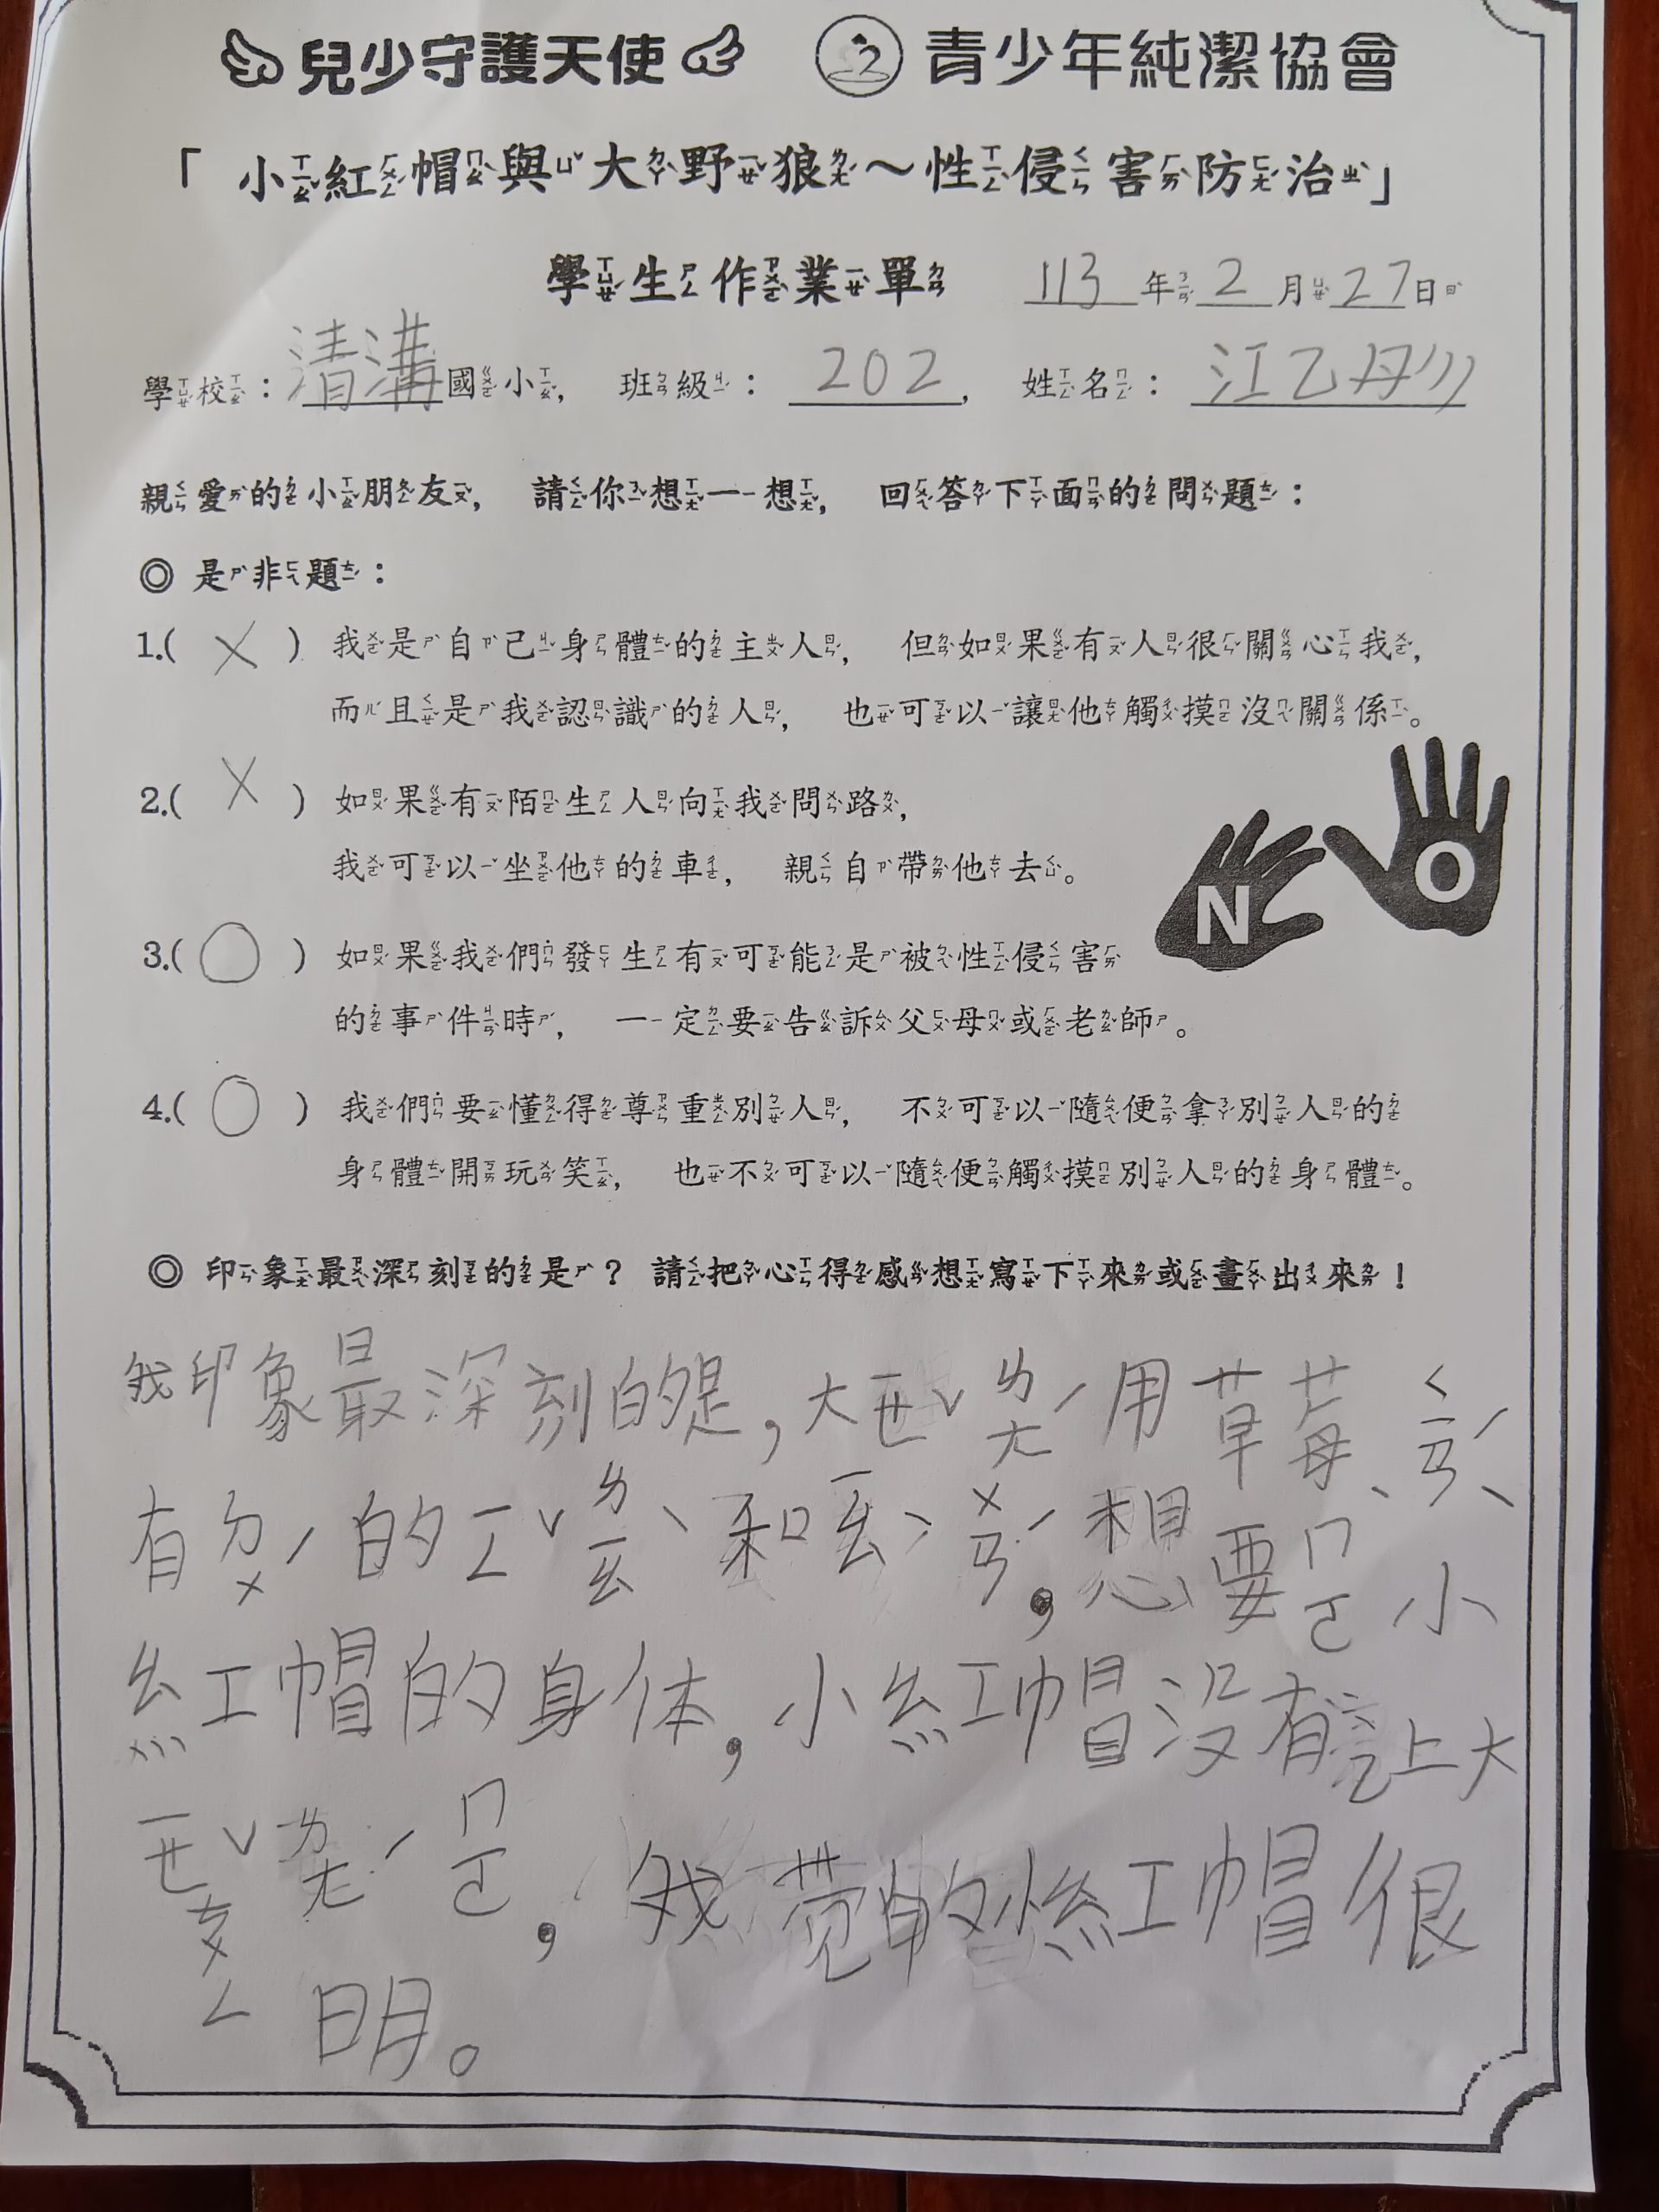 兒少守護天使 青少年純潔協會
「小紅帽與大野狼～性侵害防治」
學生作業單 113年2月27日
學校：清溝國小， 班級：202， 姓名：江乙
親愛的小朋友， 請你想一想， 回答下面的問題：
◎ 是非題：
1.( X ) 我是自己身體的主人， 但如果有人很關心我，
而且是我認識的人， 也可以讓他觸摸沒關係。
2.( X ) 如果有陌生人向我問路，
我可以坐他的車， 親自帶他去。
NO
3.( ○ ) 如果我們發生有可能是被性侵害
的事件時， 一定要告訴父母或老師。
4.( ○ ) 我們要懂得尊重別人， 不可以隨便拿別人的
身體開玩笑， 也不可以隨便觸摸別人的身體。
◎ 印象最深刻的是？ 請把心得感想寫下來或畫出來！
我印象最深刻的是，大ㄧㄝˇㄌㄤˊ用草莓、ㄑㄧㄢˊ、
有ㄉㄨˊ的ㄧㄥˇㄌㄧㄠˋ和ㄧㄠˋㄨㄢˊ，想要ㄇㄛ小
紅帽的身体，小紅帽沒有上大
ㄧㄝˇㄌㄤˊㄇㄛ，我覺的紅帽很
ㄘㄨㄥ明。